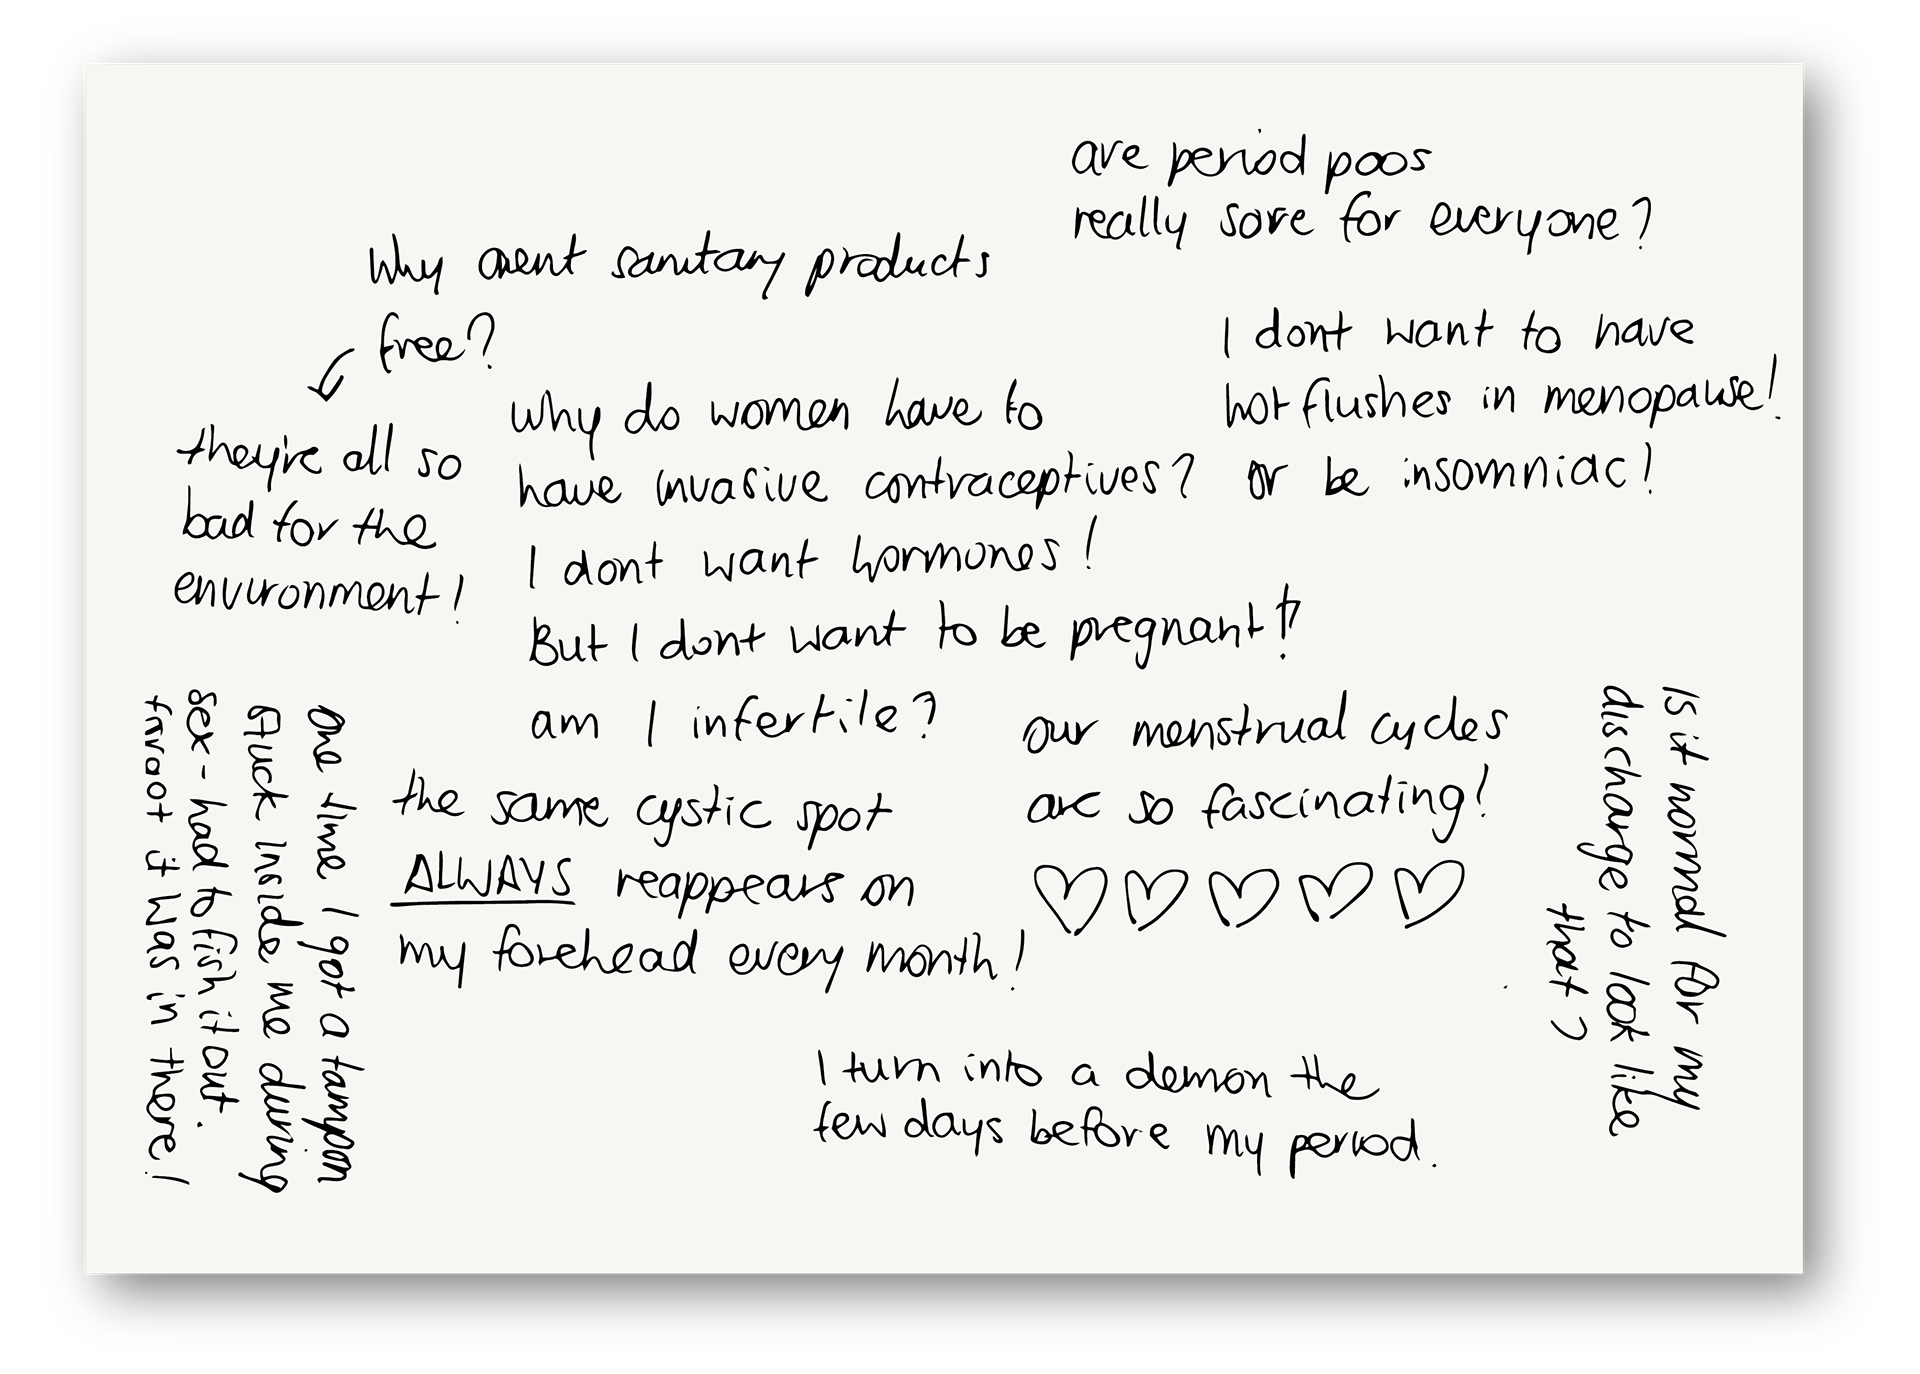 are period poos
really sore for everyone?
Why arent sanitary products
free?
they're all so
bad for the
environment!
I dont want to have
hot flushes in menopause!
or be insomniac!
Why do women have to
have invasive contraceptives?
I dont want hormones!
But I dont want to be pregnant!?
am I infertile?
our menstrual cycles
are so fascinating!
the same cystic spot
ALWAYS reappears on
my forehead every month!
One time I got a tampon
stuck inside me during
sex - had to fish it out.
forgot it was in there!
Is it normal for my
discharge to look like
that?
I turn into a demon the
few days before my period.